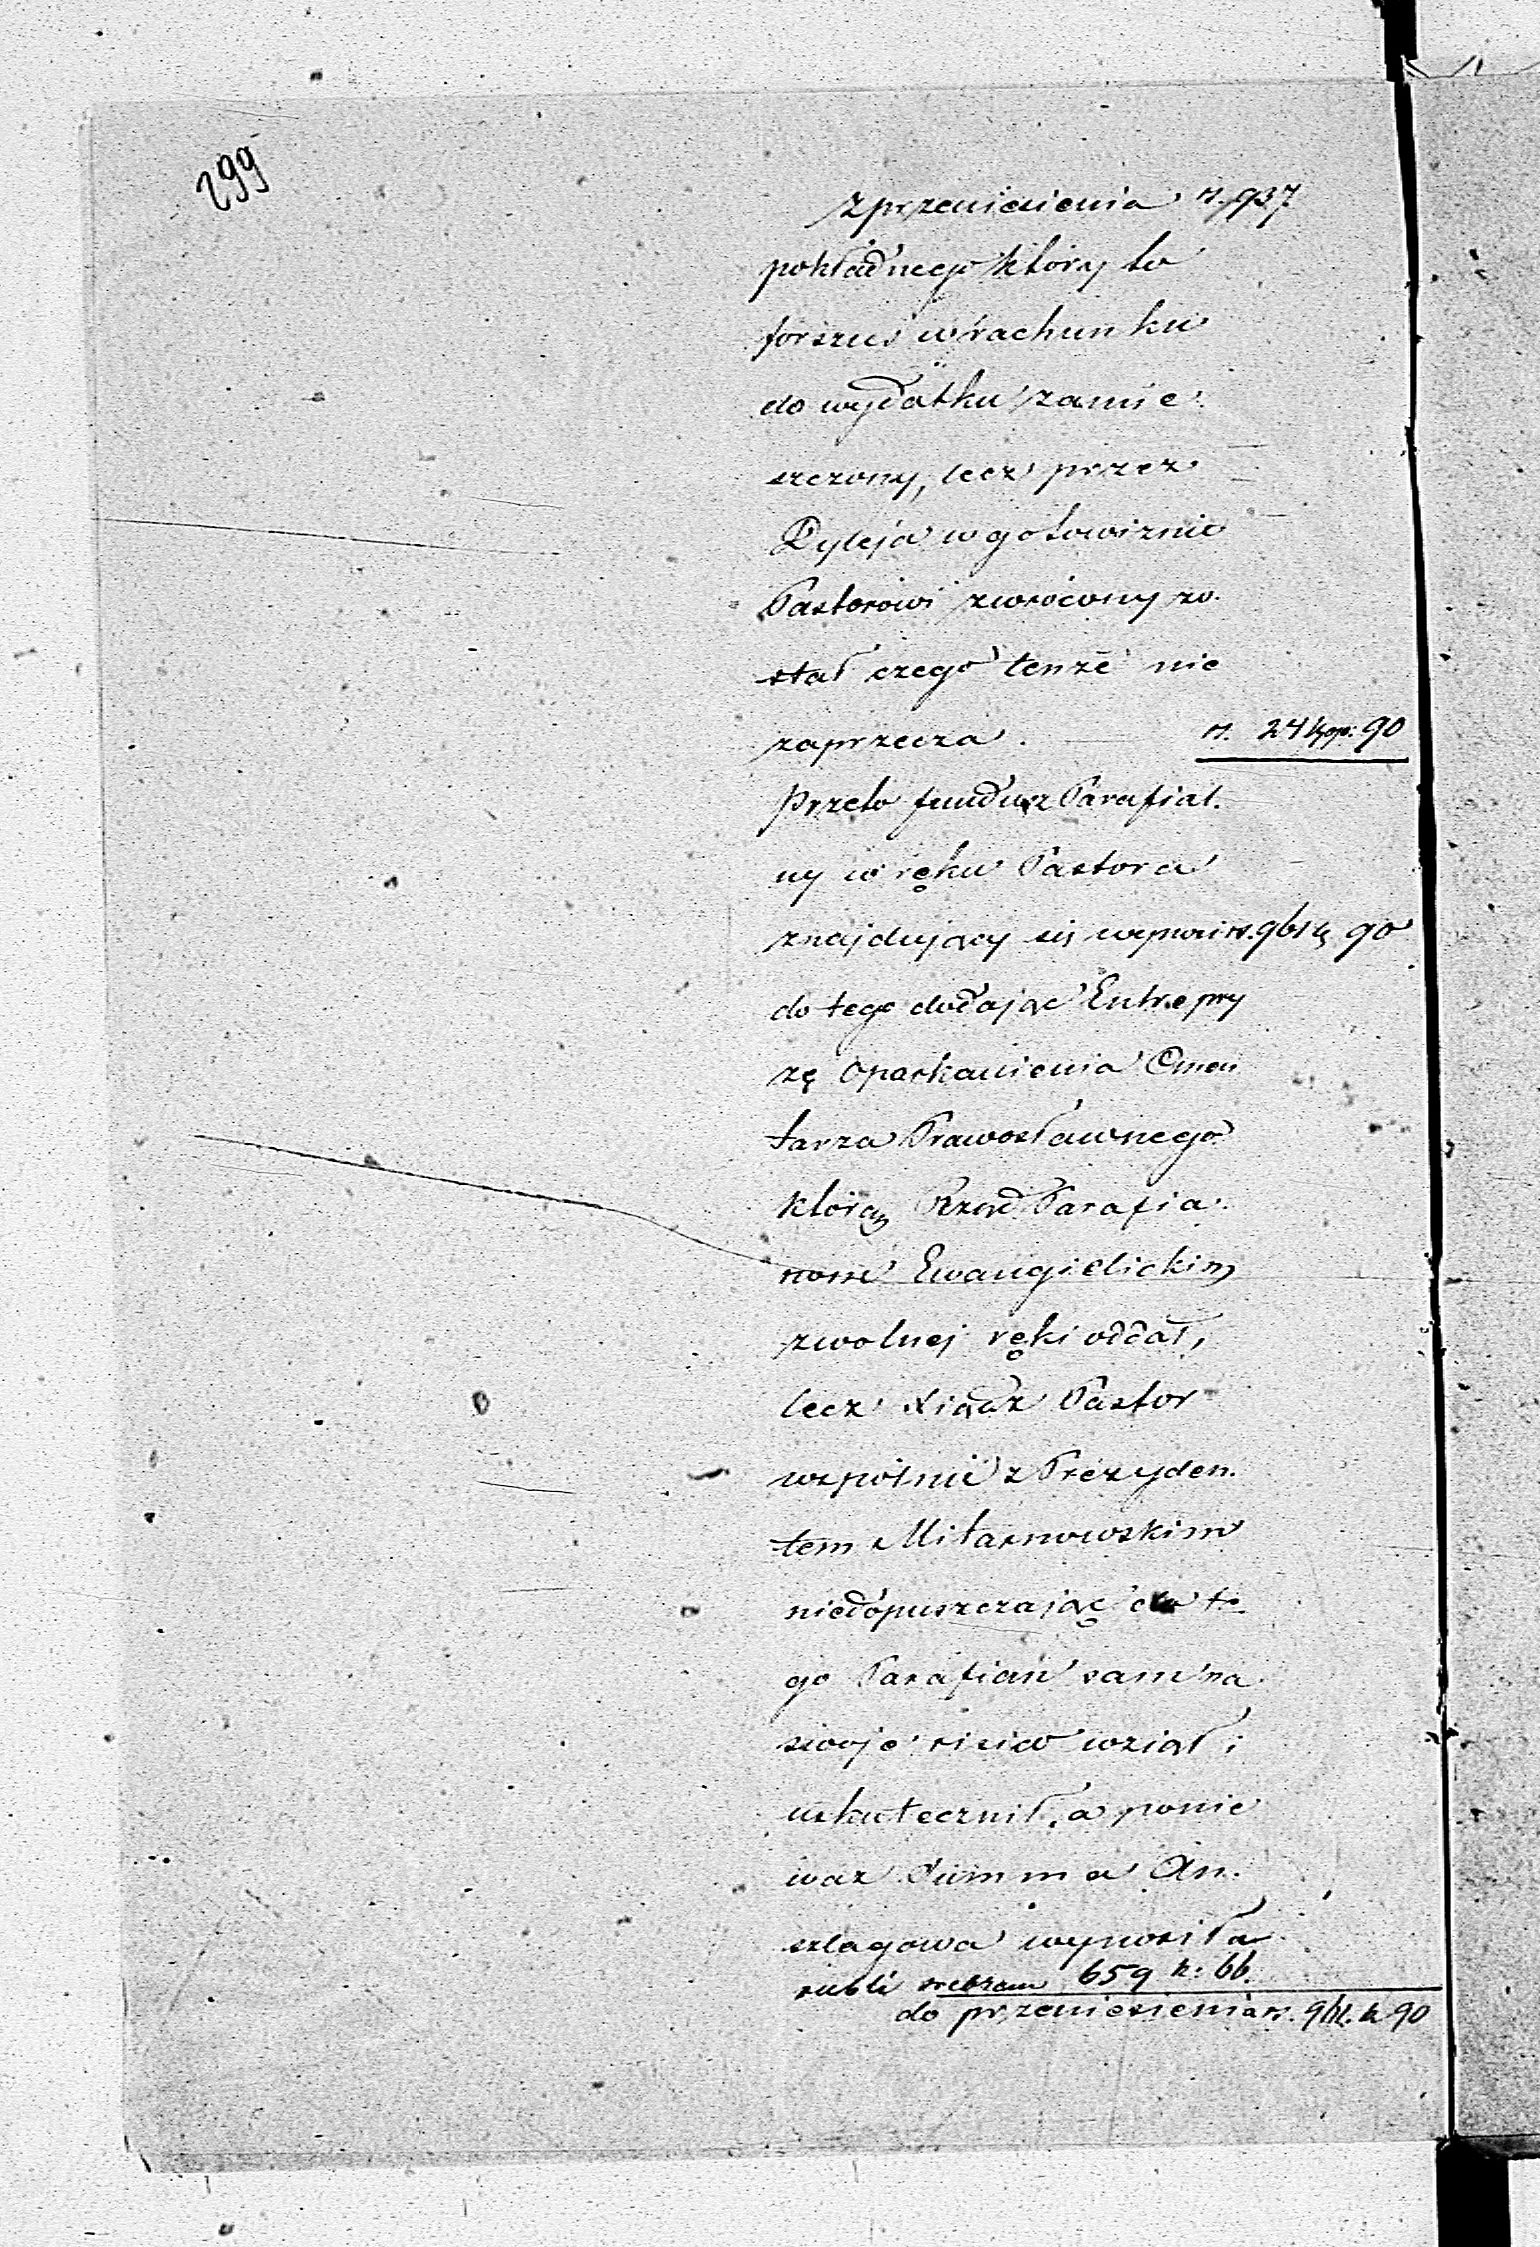 299
z przeniesienia rs. 937
pokładnego który to
forszus w rachunku
do wydatku zamie
szczony, lecz przez
Dyleja w gotowiznie
Pastorowi zwrócony zo-
stał czego tenże nie
zaprzecza. rs. 24 kop: 90
Przeto fundusz Parafial-
ny w ręku Pastora
znajdujący się wynosi rs. 961 k 90
do tego dodając Entrepry
zę oparkanienia Cmen
tarza Prawosławnego
którą Rząd Parafia-
nom Ewangielickim
z wolnej ręki oddał,
lecz Xiądz Pastor
wspólnie z Prezyden-
tem Milanowskim
niedopuszczając do te-
go Parafian sam na
swoje risico wziął i
uskutecznił, a ponie
waz Summa An-
szlagowa wynosiła
rubli srebrem 659 k: 66.
do przeniesienia rs. 961. k 90